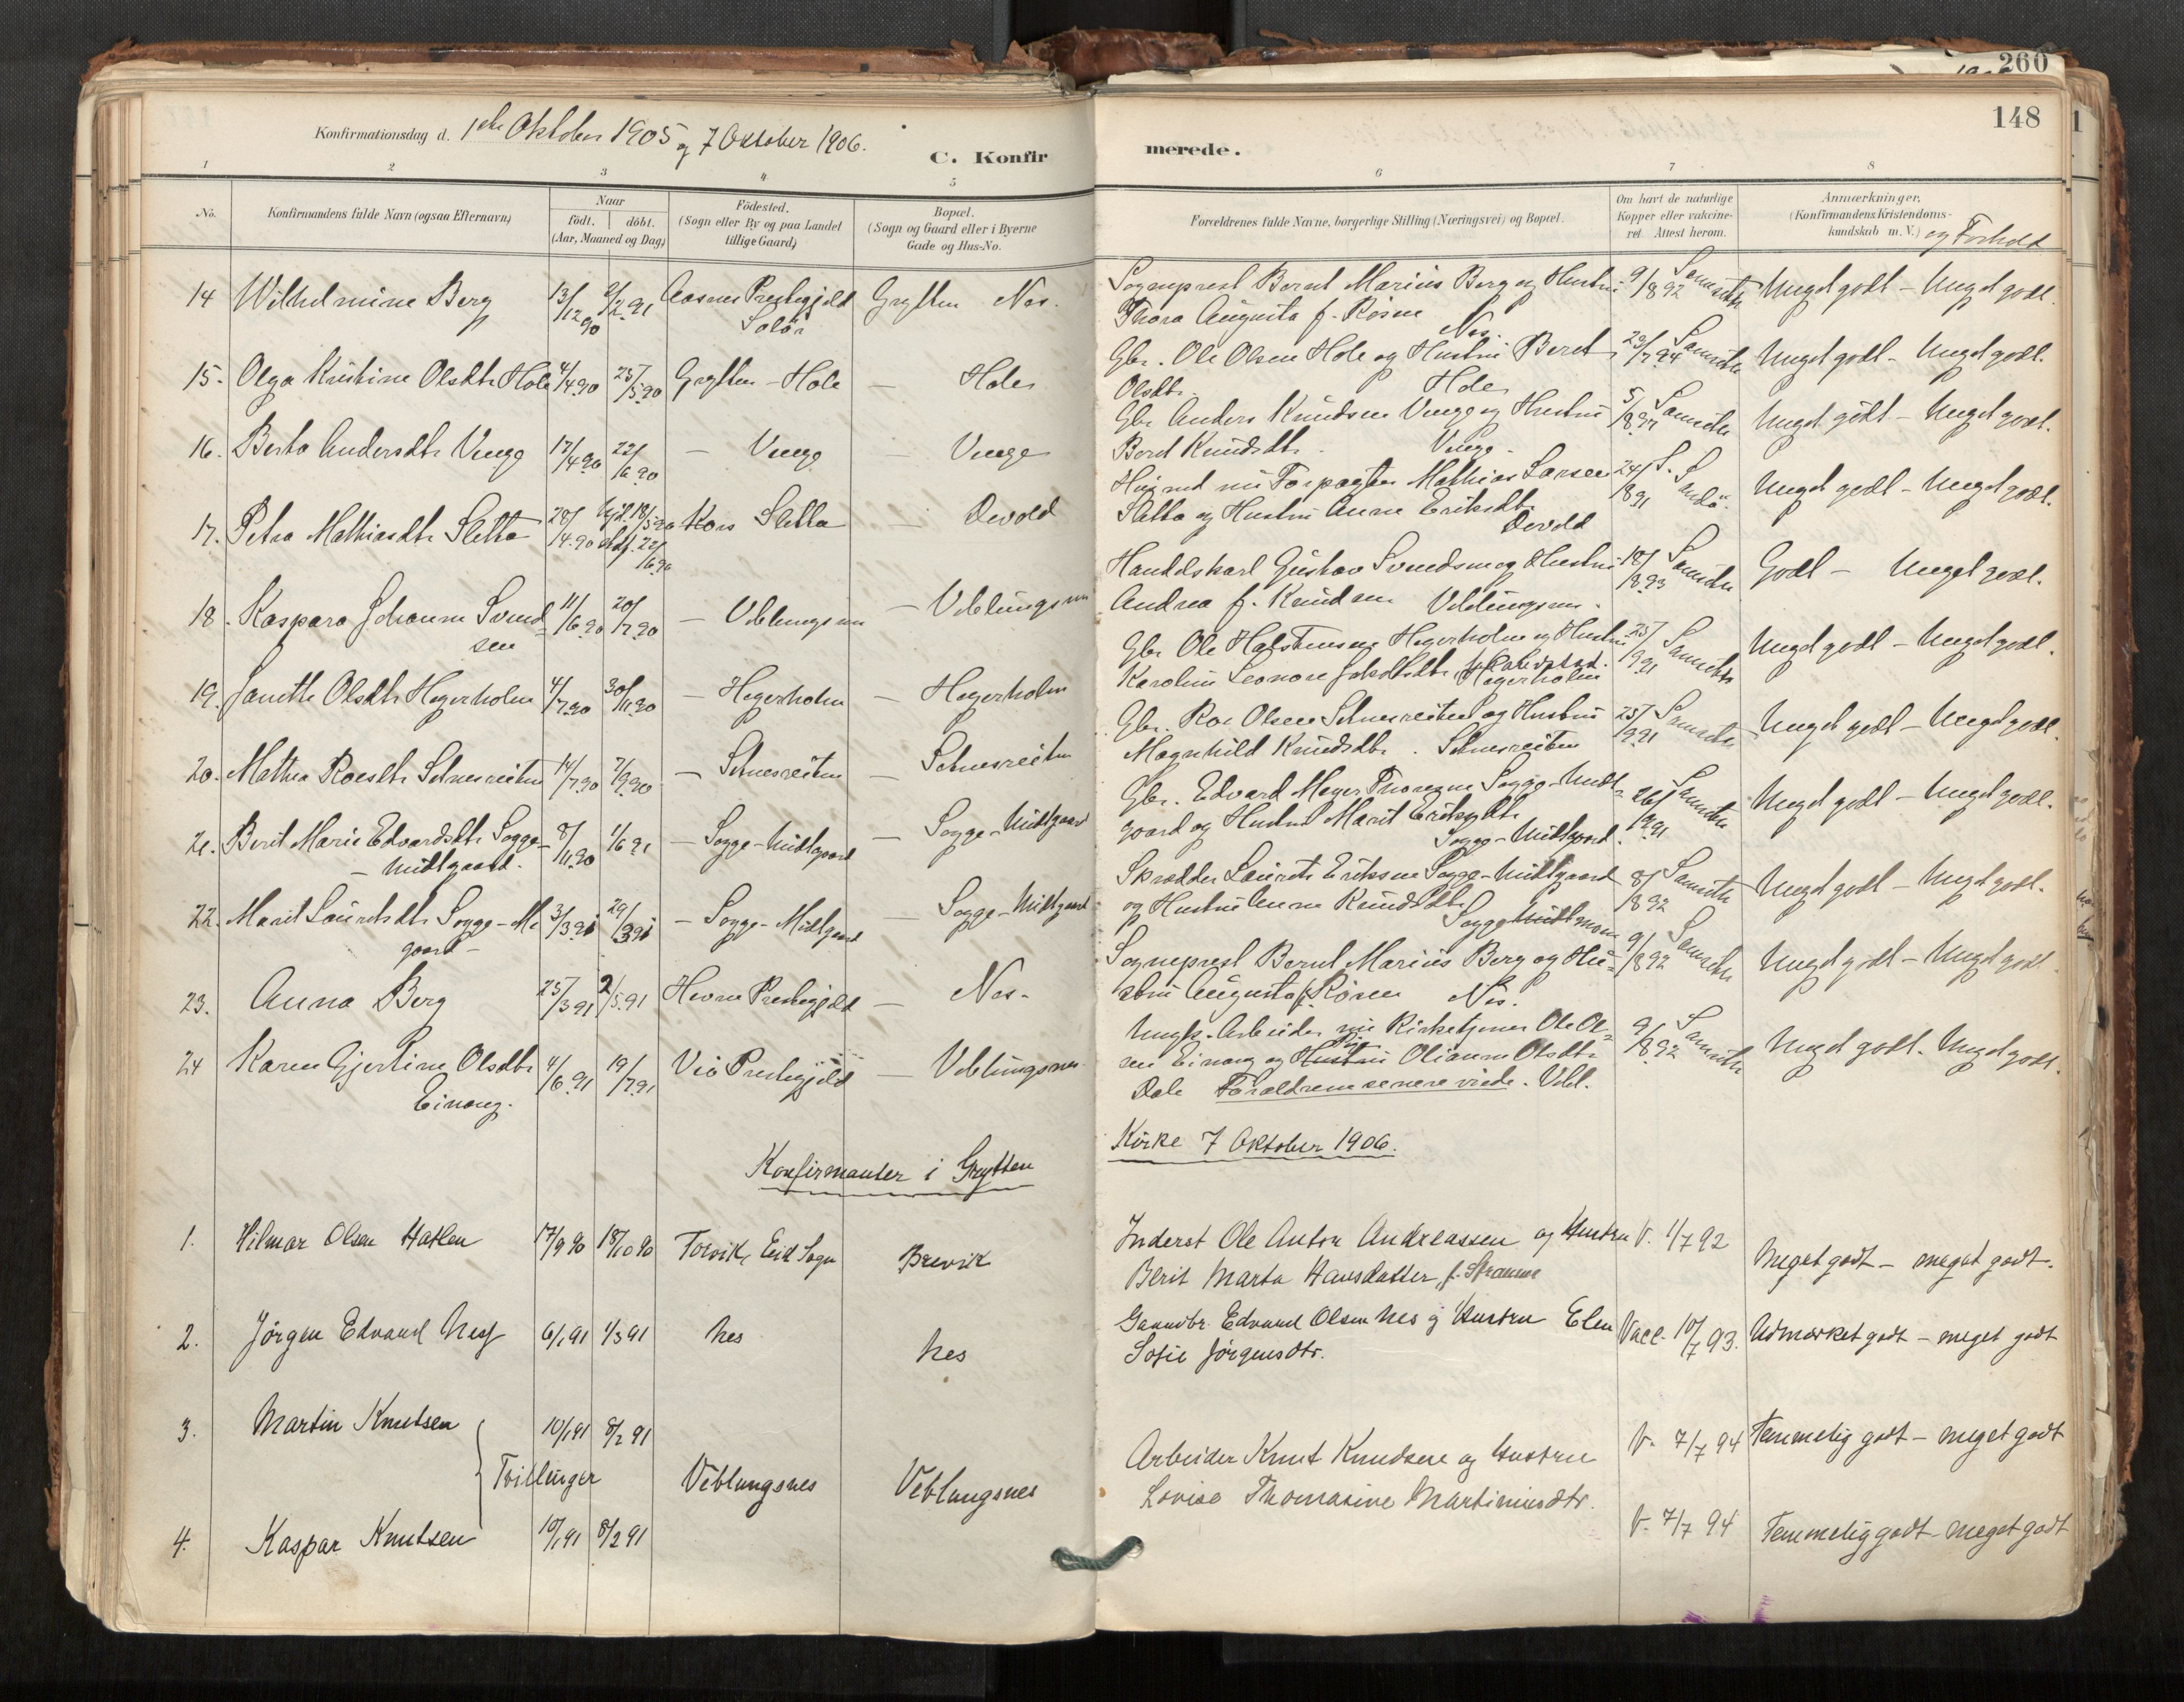 260
148
Konfirmationsdag d. 1ste Oktober 1905 og 7 Oktober 1906.
C. Konfirmerede.
1 2 3 4 5 6 7 8
No.
Konfirmandens fulde Navn (ogsaa Efternavn)
Naar
födt. döbt.
(Aar, Maaned og Dag)
Födested.
(Sogn eller By og paa Landet
tillige Gaard)
Bopæl.
(Sogn og Gaard eller i Byerne
Gade og Hus-No.
Forældrenes fulde Navne, borgerlige Stilling (Næringsvei) og Bopæl.
Om havt de naturlige
Kopper eller vakcine-
ret. Attest herom.
Anmærkninger.
(Konfirmandens Kristendoms-
kundskab m. V.) og Forhold
14 Wilhelmine Berg 13/12 90 2/2 91 Aasnes Prestegjeld Solör Grytten Nes.
Sogneprest Bernt Marius Berg og Hustru 9/8 92 Meget godt – Meget godt.
Thora Augusta f. Rösen Nes.
15. Olga Kristine Olsdtr Hole 4/4 90 25/5 90 Grytten – Hole – Hole
Gbr. Ole Olsen Hole og Hustru Beret 23/7 94 Meget godt – Meget godt.
Olsdtr. Hole
16. Berta Andersdtr Venge 17/4 90 22/6 90 – Venge – Venge
Gbr Anders Knudsen Venge og Hustru 5/8 97 Meget godt – Meget godt.
Beret Knudsdtr. Venge.
17. Petra Mathiasdtr Sletta 28/4 90 hjd. 18/5 90 stadf. 22/6 90 Kors Sletta – Devold
Husmd nu Forpagter Mathias Larsen 24/8 91 Meget godt – Meget godt.
Sletta og Hustru Anne Eriksdtr Devold
18. Kaspara Johanne Svend= 11/6 90 20/7 90 – Veblungsnes – Veblungsnes
sen
Handelskarl Gustav Svendsen og Hustru 18/8 93 Godt – Meget godt.
Andrea f. Knudsen Veblungsnes.
19. Janethe Olsdtr Hegerholm 4/7 90 30/11 90 – Hegerholm – Hegerholm
Gbr Ole Halstensen Hegerholm og Hustru 25/9 91 Meget godt – Meget godt.
Karoline Leonore Hegerholm
20. Mathea Roesdtr Setnesreiten 14/7 90 7/9 90 – Setnesreiten – Setnesreiten
Gbr. Roe Olsen Setnesreiten og Hustru 25/9 91 Meget godt – Meget godt.
Magnhild Knudsdtr. Setnesreiten
21. Berit Marie Edvardsdtr Sogge- 8/11 90 1/6 91 – Sogge-Midtgaard – Sogge-Midtgaard
– Midtgaard.
Gbr. Edvard Meyer Thoresen Sogge-Midt= 26/9 91 Meget godt – Meget godt.
gaard og Hustru Marit Eriksdtr
Sogge-Midtgaard.
22. Marit Lauritsdtr Sogge-Mi 3/3 91 29/3 91 – Sogge-Midtgaard – Sogge-Midtgaard
gaard –
Skrædder Laurits Eriksen Sogge-Midtgaard 8/8 92 Meget godt – Meget godt.
og Hustru Anne Knudsdtr
23. Anna Berg 25/3 91 2/5 91 Hevne Prestegjeld – Nes.
Sogneprest Bernt Marius Berg og Hu= 9/8 92 Meget godt – Meget godt
stru Augusta f. Rösen Nes.
24 Karen Gjertine Olsdtr 4/6 91 19/7 91 Veö Prestegjeld – Veblungsnes.
Einang.
Ungk. Arbeider nu Kirketjener Ole Ol= 9/8 92 Meget godt. Meget godt.
sen Einang og Pige Hustru Olianne Olsdtr
Dale Forældrene senere viede. Vebl.
Konfirmanter i Grytten Kirke 7 Oktober 1906.
1. Hilmar Olsen Hatlen 17/9 90 18/10 90 Torvik, Eid Sogn Brevik
Inderst Ole Anton Andreassen og Hustru V. 1/7 92 Meget godt – meget godt.
Berit Marta Hansdatter
2. Jörgen Edvard Nes 6/1 91 1/3 91 Nes Nes
Gaardbr. Edvard Olsen Nes og Hustru Elen Vacc. 10/7 93. Udmærket godt – meget godt
Sofie Jörgensdtr.
3. Martin Knutsen 10/1 91 8/2 91
Tvillinger Veblungsnes Veblungsnes
Arbeider Knut Knudsen og Hustru V. 7/7 94 Temmelig godt – meget godt
Lovise Thomasine Martinusdtr.
4. Kaspar Knutsen 10/1 91 8/2 91 V. 7/7 94 Temmelig godt – meget godt